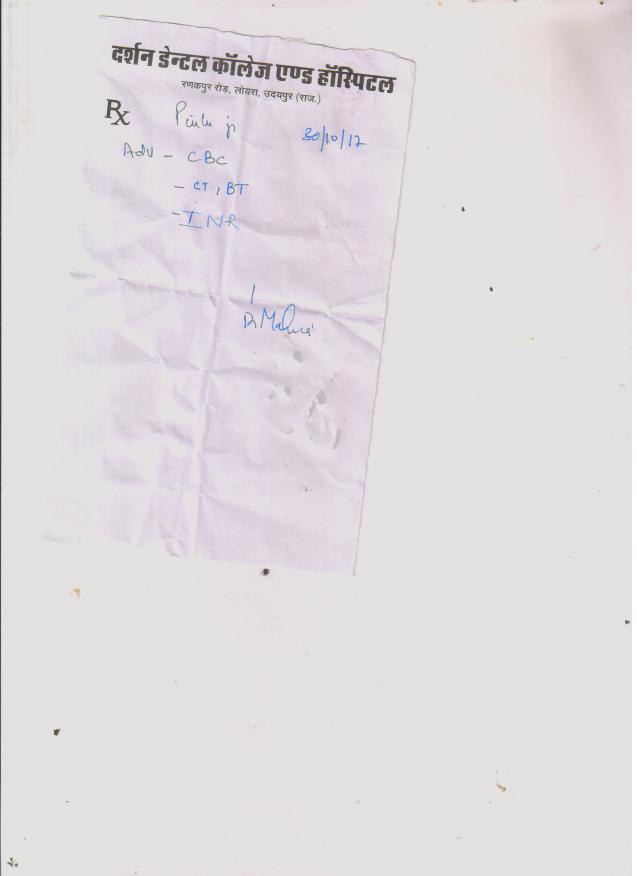 दर्शन डेन्टल कॉलेज एण्ड हॉस्पिटल
रणकपुर रोड़, लोयरा, उदयपुर (राज.)
Rx
30/10/17
Adv - CBC
- CT, BT
- INR
Dr